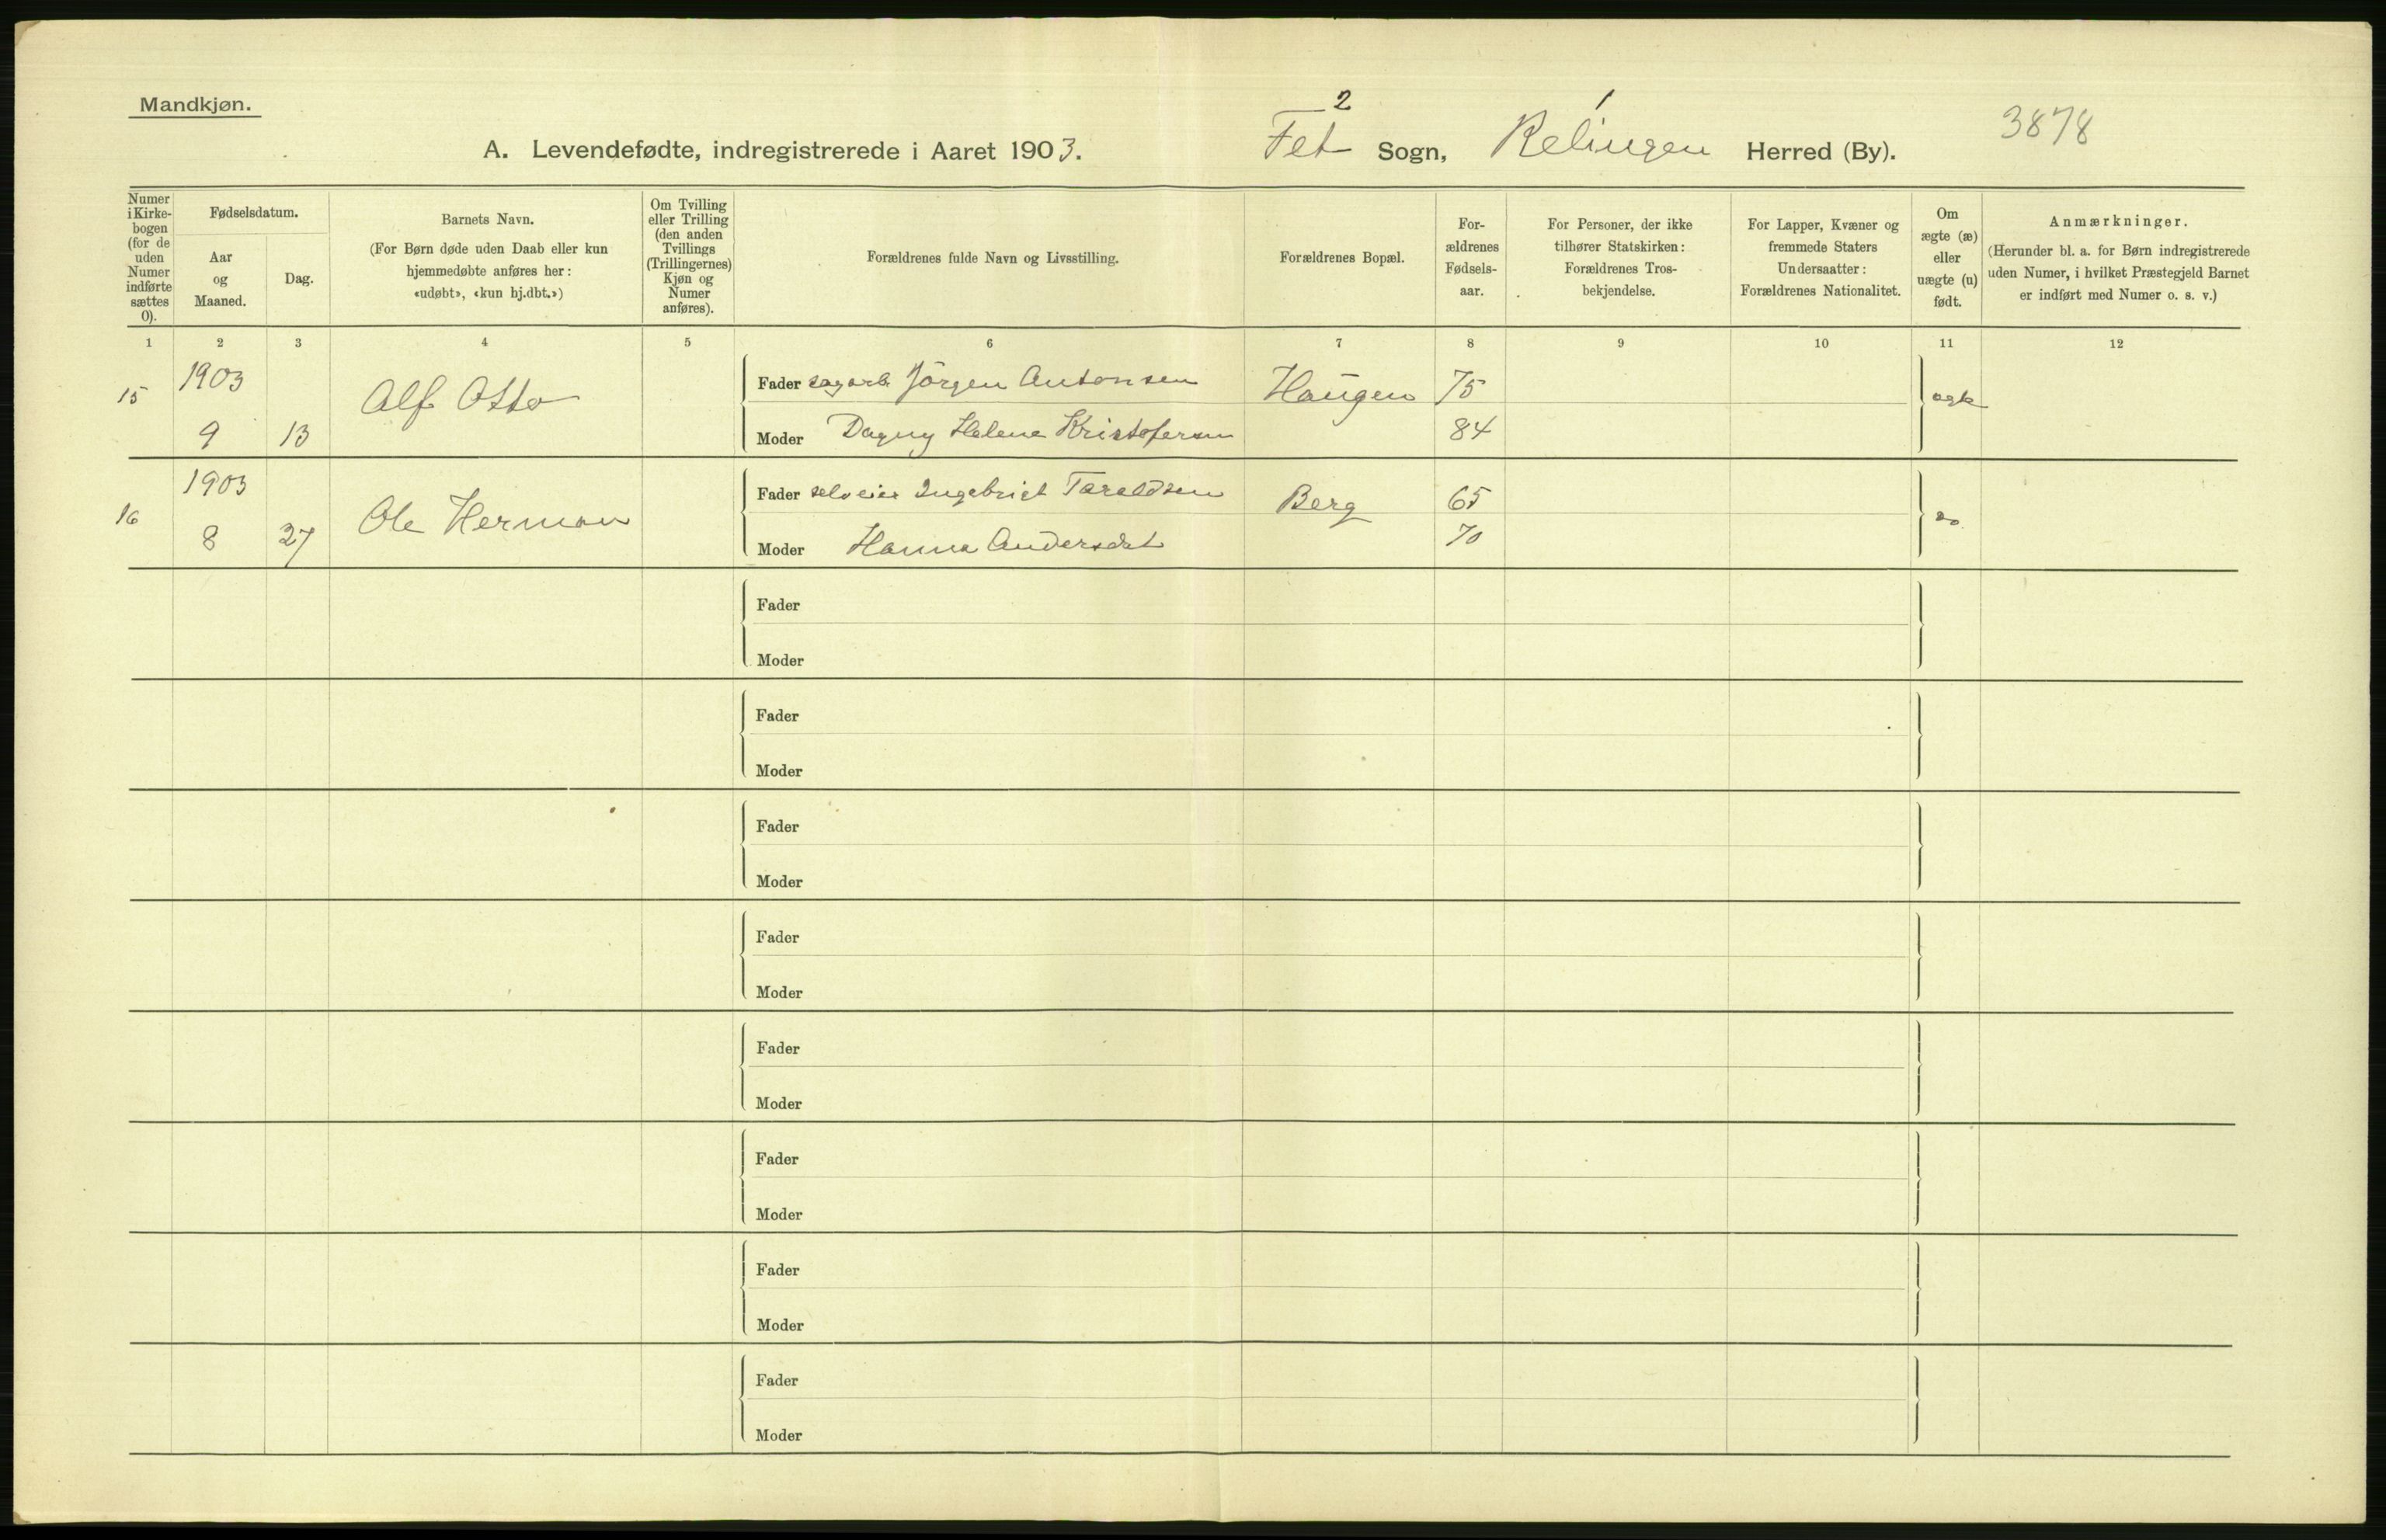 Mandkjøn.
A. Levendefødte, indregistrerede i Aaret 1903.
2
Fet Sogn, Relingen Herred (By).
3878
Numer i Kirke-bogen (for de uden Numer indførte sættes 0).
Fødselsdatum.
Aar og Maaned.
Dag.
Barnets Navn.
(For Børn døde uden Daab eller kun
hjemmedøbte anføres her:
«udøbt», «kun hj.dbt.»)
Om Tvilling
eller Trilling
(den anden
Tvillings
(Trillingernes)
Kjøn og
Numer
anføres).
Forældrenes fulde Navn og Livsstilling.
Forældrenes Bopæl.
For-
ældrenes
Fødsels-
aar.
For Personer, der ikke
tilhører Statskirken:
Forældrenes Tros-
bekjendelse.
For Lapper, Kvæner og
fremmede Staters
Undersaatter:
Forældrenes Nationalitet.
Om
ægte (æ)
eller
uægte (u)
født.
Anmærkninger.
(Herunder bl. a. for Børn indregistrerede
uden Numer, i hvilket Præstegjeld Barnet
er indført med Numer o. s. v.)
1 2 3 4 5 6 7 8 9 10 11 12
15 1903 Alf Otto Fader sagarb. Jörgen Antonsen Haugen 75 ægte
9 13 Moder Dagny Helene Kristofersen 84
16 1903 Ole Herman Fader selveier Ingebrigt Taraldsen Berg 65 do
8 27 Moder Hanna Andersdat 70
Fader
Moder
Fader
Moder
Fader
Moder
Fader
Moder
Fader
Moder
Fader
Moder
Fader
Moder
Fader
Moder